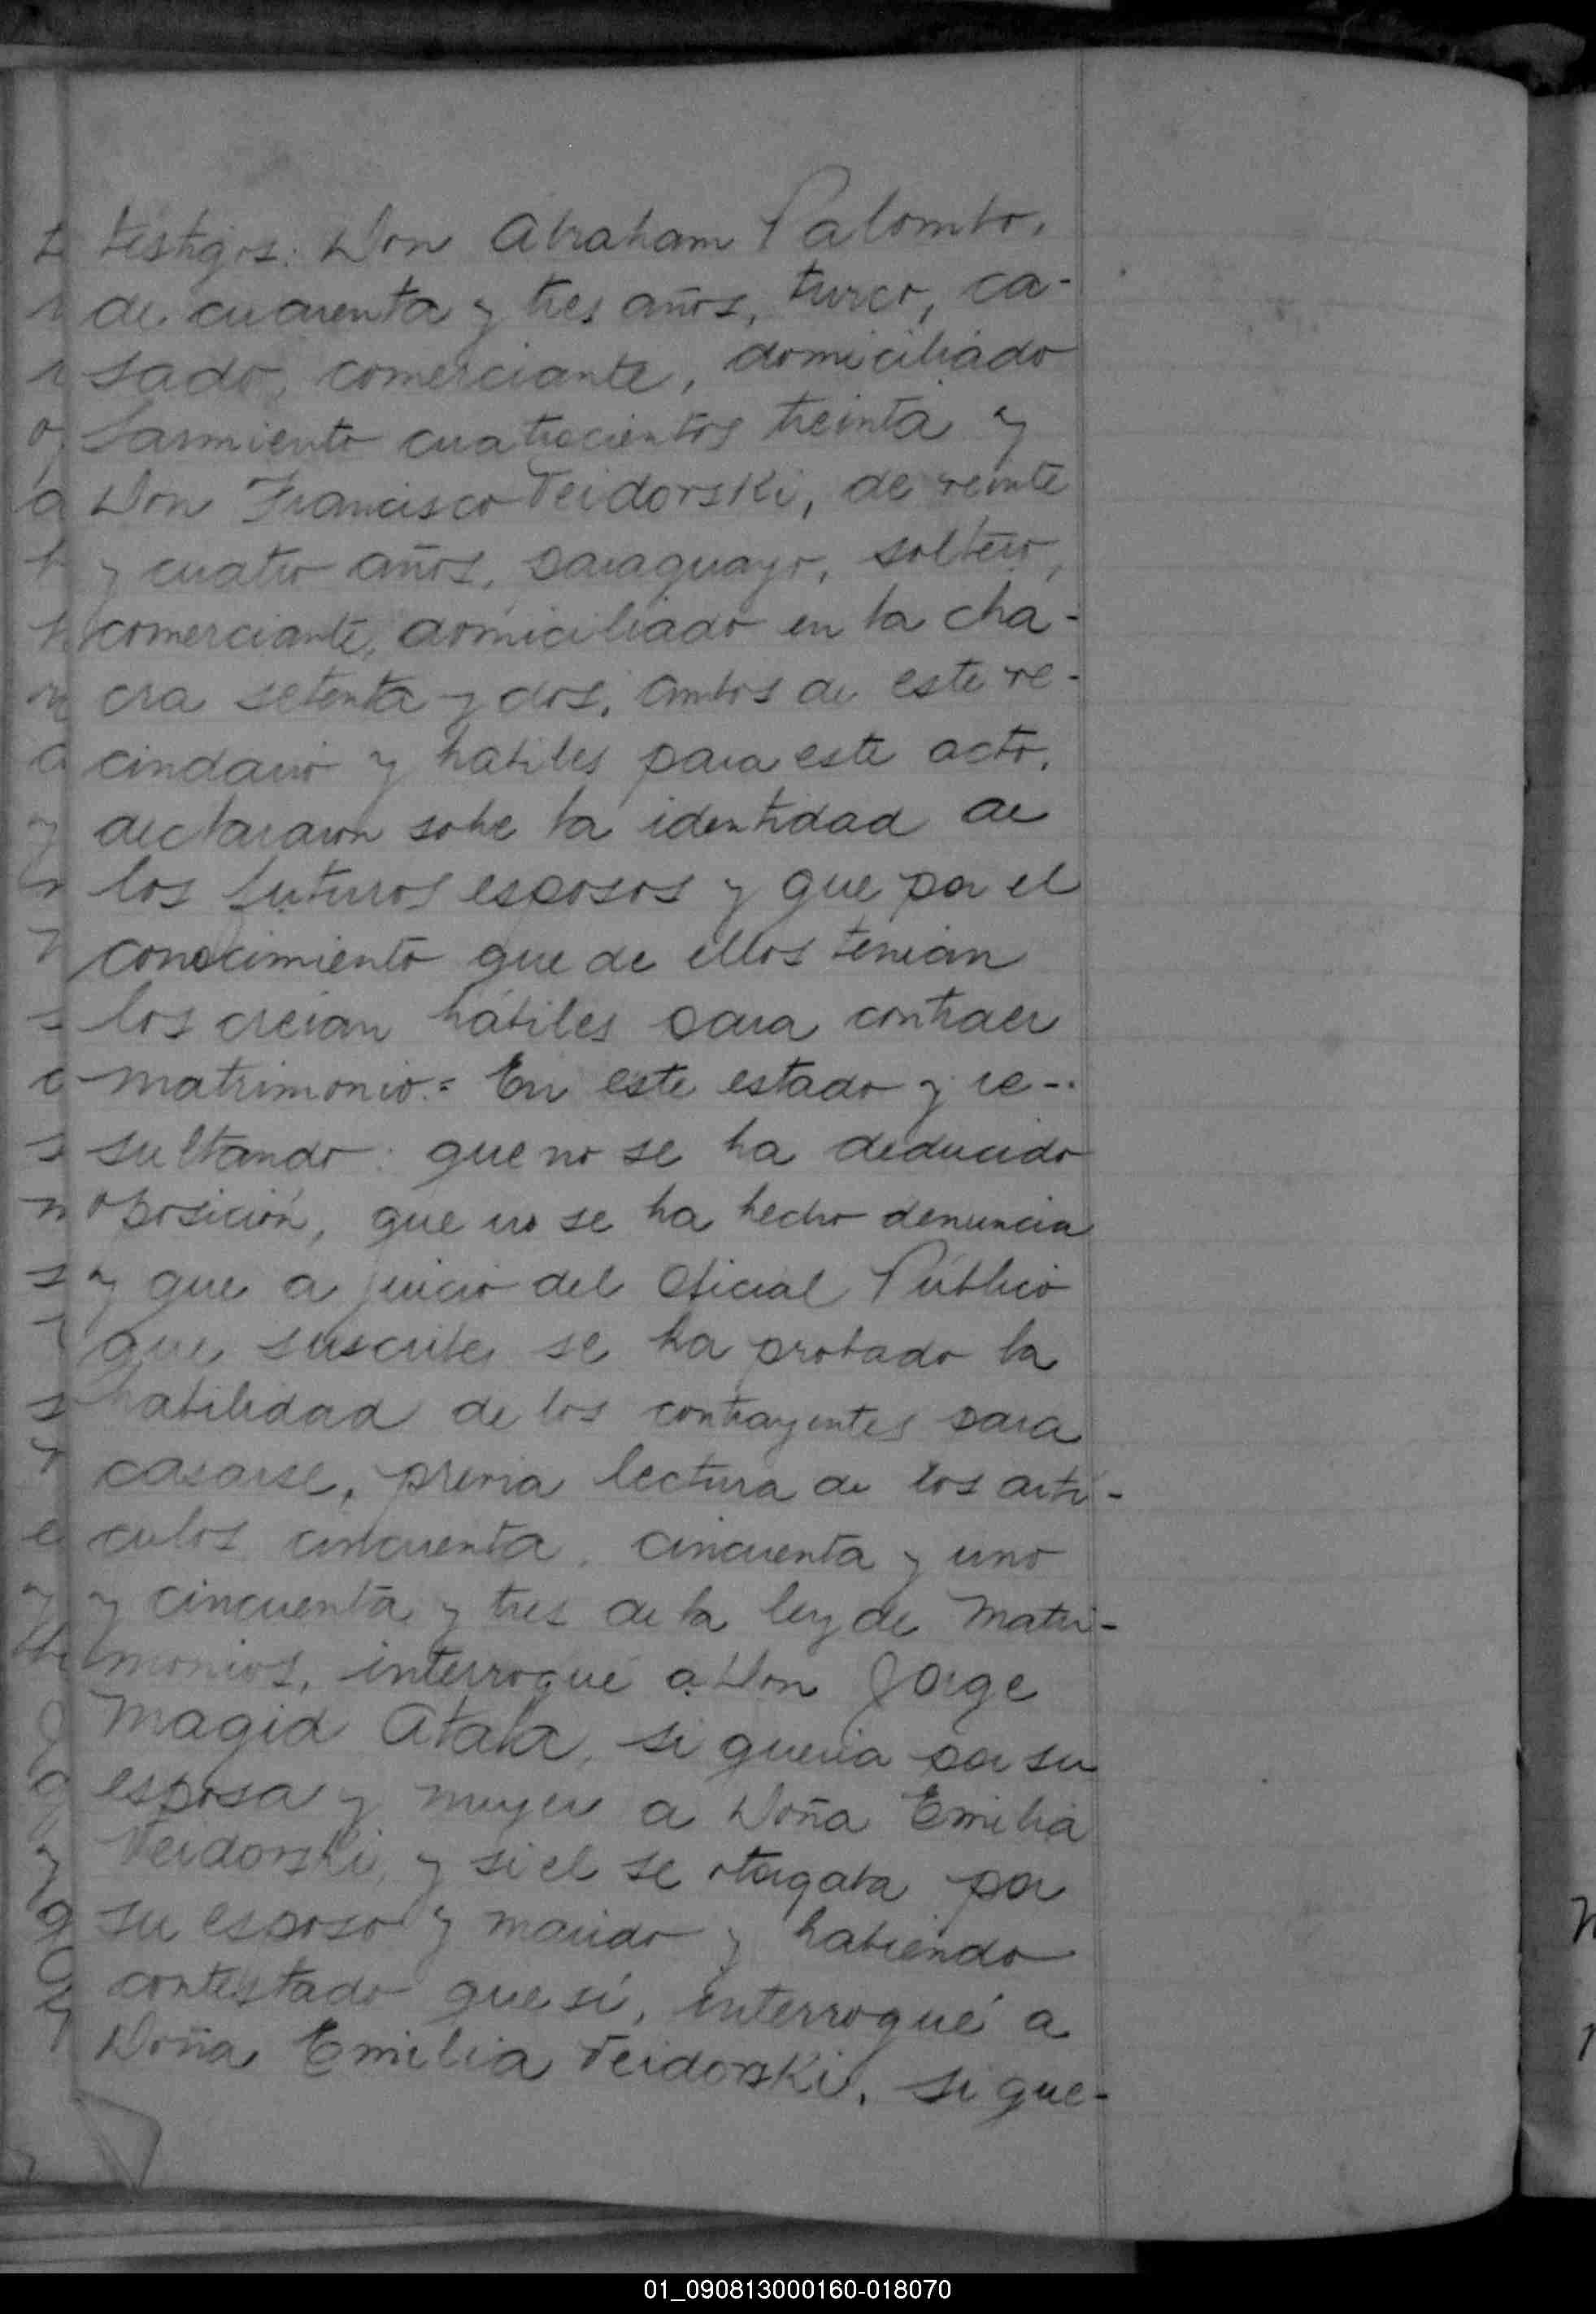 testigos: Don Abraham Palombo,
de cuarenta y tres años, turco, ca-
sado, comerciante, domiciliado
Sarmiento cuatrocientos treinta y
Don Francisco Feidorski, de veinte
y cuatro años, paraguayo, soltero,
comerciante, domiciliado en la cha-
cra setenta y dos, ambos de este ve-
cindario y habiles para este acto,
declararon sobre la identidad de
los futuros esposos y que por el
conocimiento que de ellos tenian
los creian hábiles para contraer
matrimonio.= En este estado y re-
sultando: que no se ha deducido
oposición, que no se ha hecho denuncia
y que a juicio del Oficial Público
que suscribe se ha probado la
habilidad de los contrayentes para
casarse, previa lectura de los artí-
culos cincuenta, cincuenta y uno
y cincuenta y tres de la ley de Matri-
monios, interrogué a Don Jorge
Magid Atala, si queria por su
esposa y mujer a Doña Emilia
Feidorski, y si el se otorgaba por
su esposo y marido y habiendo
contestado que sí, interrogué a
Doña Emilia Feidorski, si que-
01_090813000160-018070